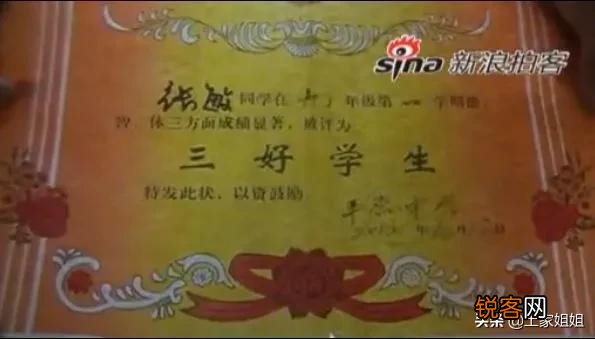 sina 新浪拍客
张敏 同学在 年级第 学期德、
智、体三方面成绩显著，被评为
三好学生
特发此状，以资鼓励
年 月 日
锐客网
头条 @王家姐姐